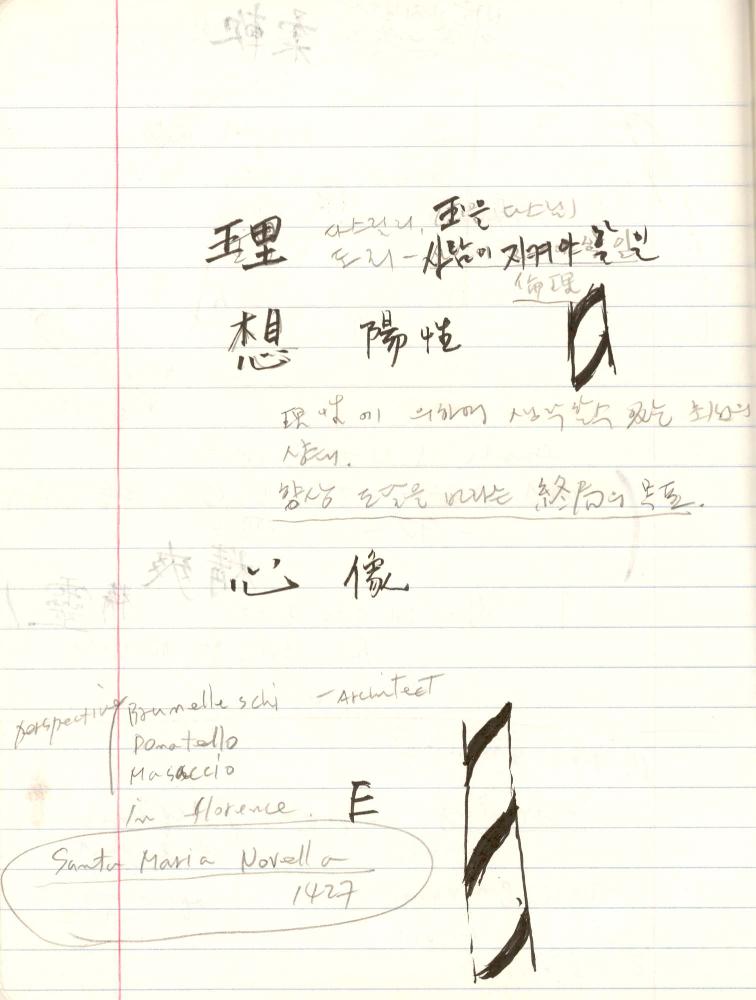 理 다스릴리, 玉을 다스님
도리 - 사람이 지켜야 할 일
倫理
想 陽性
理性에 의하여 생각할 수 있는 최상의
상태.
향상 노력을 바라는 終局의 목표.
心 像
perspective Brunelleschi - Architect
Donatello
Masaccio
in florence. E
Santa Maria Novella
1427